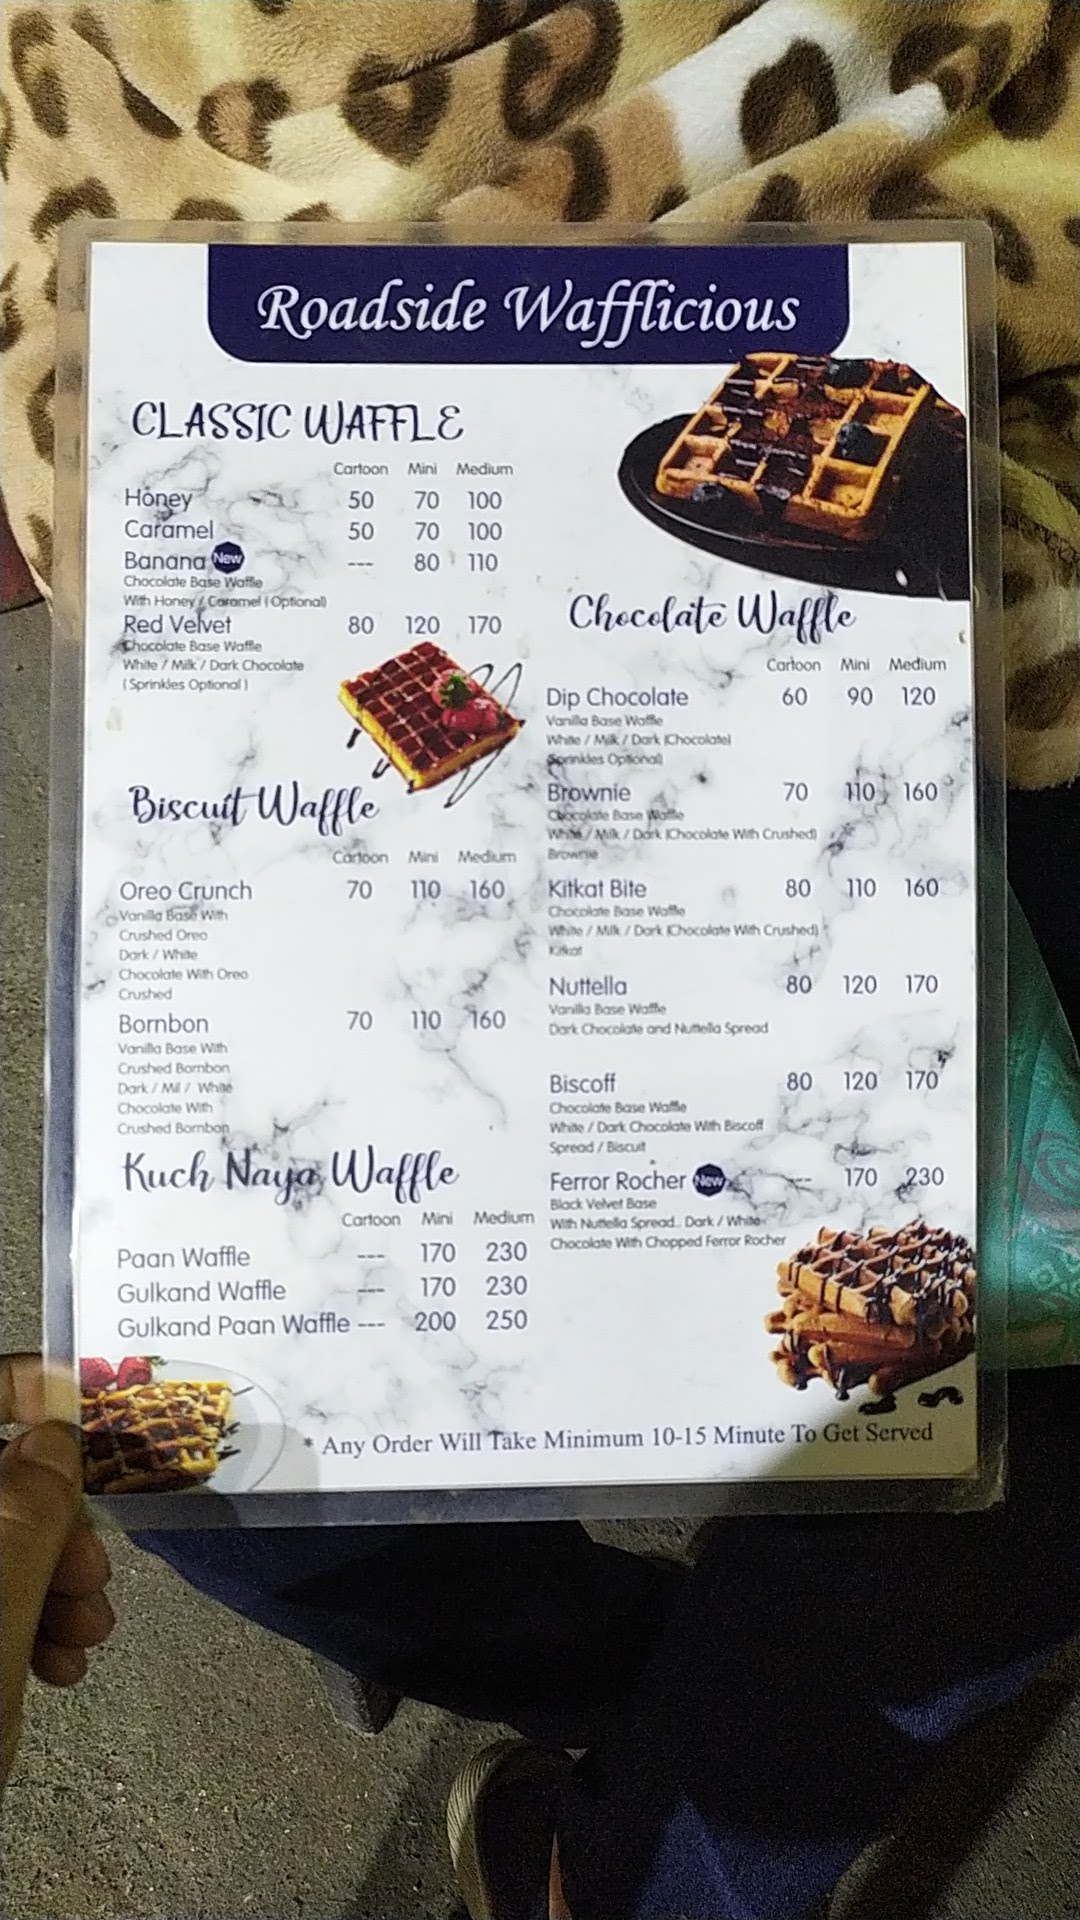 Roadside Wafflicious
CLASSIC WAFFLE
Cartoon Mini Medium
Honey 50 70 100
Caramel 50 70 100
Banana New --- 80 110
Chocolate Base Waffle
With Honey / Caramel (Optional)
Red Velvet 80 120 170
Chocolate Base Waffle
White / Milk / Dark Chocolate
(Sprinkles Optional)
Biscuit Waffle
Cartoon Mini Medium
Oreo Crunch 70 110 160
Vanilla Base With
Crushed Oreo
Dark / White
Chocolate With Oreo
Crushed
Bornbon 70 110 160
Vanilla Base With
Crushed Bornbon
Dark / Mil / White
Chocolate With
Crushed Bornbon
Kuch Naya Waffle
Cartoon Mini Medium
Paan Waffle --- 170 230
Gulkand Waffle --- 170 230
Gulkand Paan Waffle --- 200 250
Chocolate Waffle
Cartoon Mini Medium
Dip Chocolate 60 90 120
Vanilla Base Waffle
White / Milk / Dark (Chocolate)
Sprinkles Optional)
Brownie 70 110 160
Chocolate Base Waffle
White / Milk / Dark (Chocolate With Crushed)
Brownie
Kitkat Bite 80 110 160
Chocolate Base Waffle
White / Milk / Dark (Chocolate With Crushed)
Kitkat
Nuttella 80 120 170
Vanilla Base Waffle
Dark Chocolate and Nuttella Spread
Biscoff 80 120 170
Chocolate Base Waffle
White / Dark Chocolate With Biscoff
Spread / Biscuit
Ferror Rocher New --- 170 230
Black Velvet Base
With Nuttella Spread.. Dark / White
Chocolate With Chopped Ferror Rocher
* Any Order Will Take Minimum 10-15 Minute To Get Served